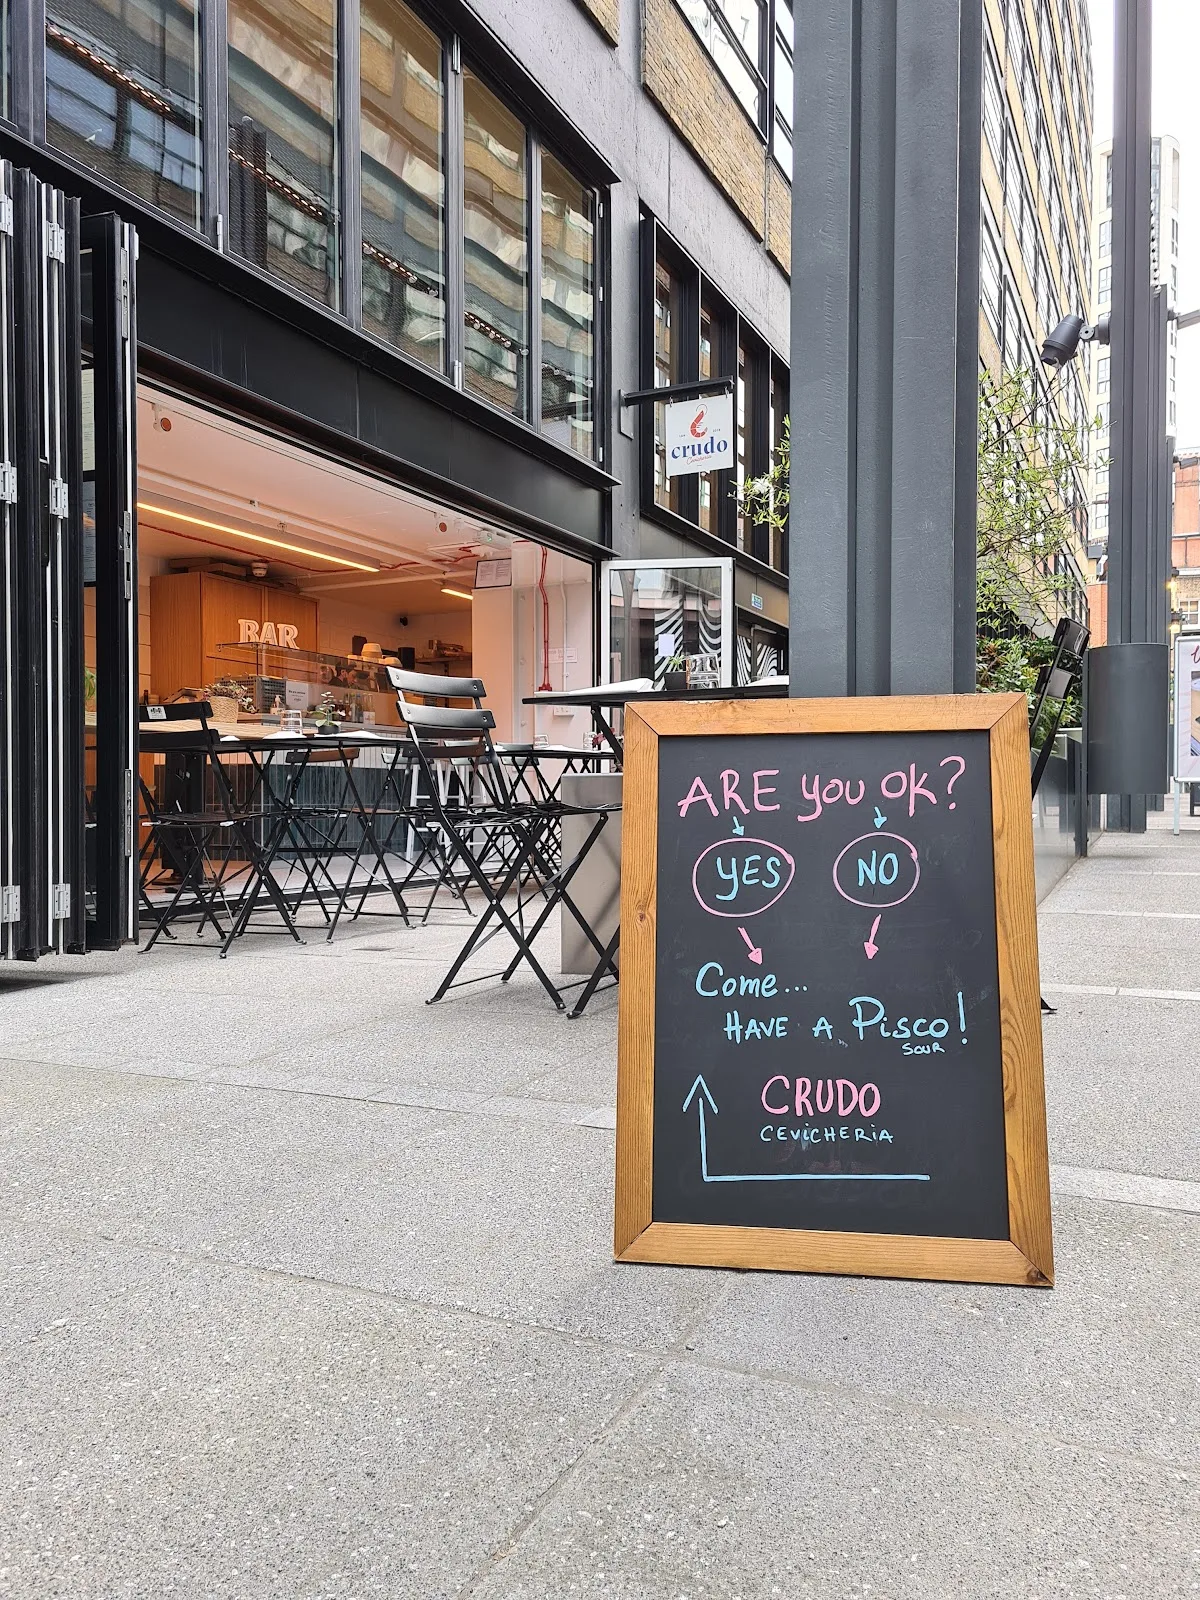 crudo
Cevicheria
BAR
ARE you OK?
YES NO
Come...
HAVE A Pisco!
SOUR
CRUDO
CEViCHERiA